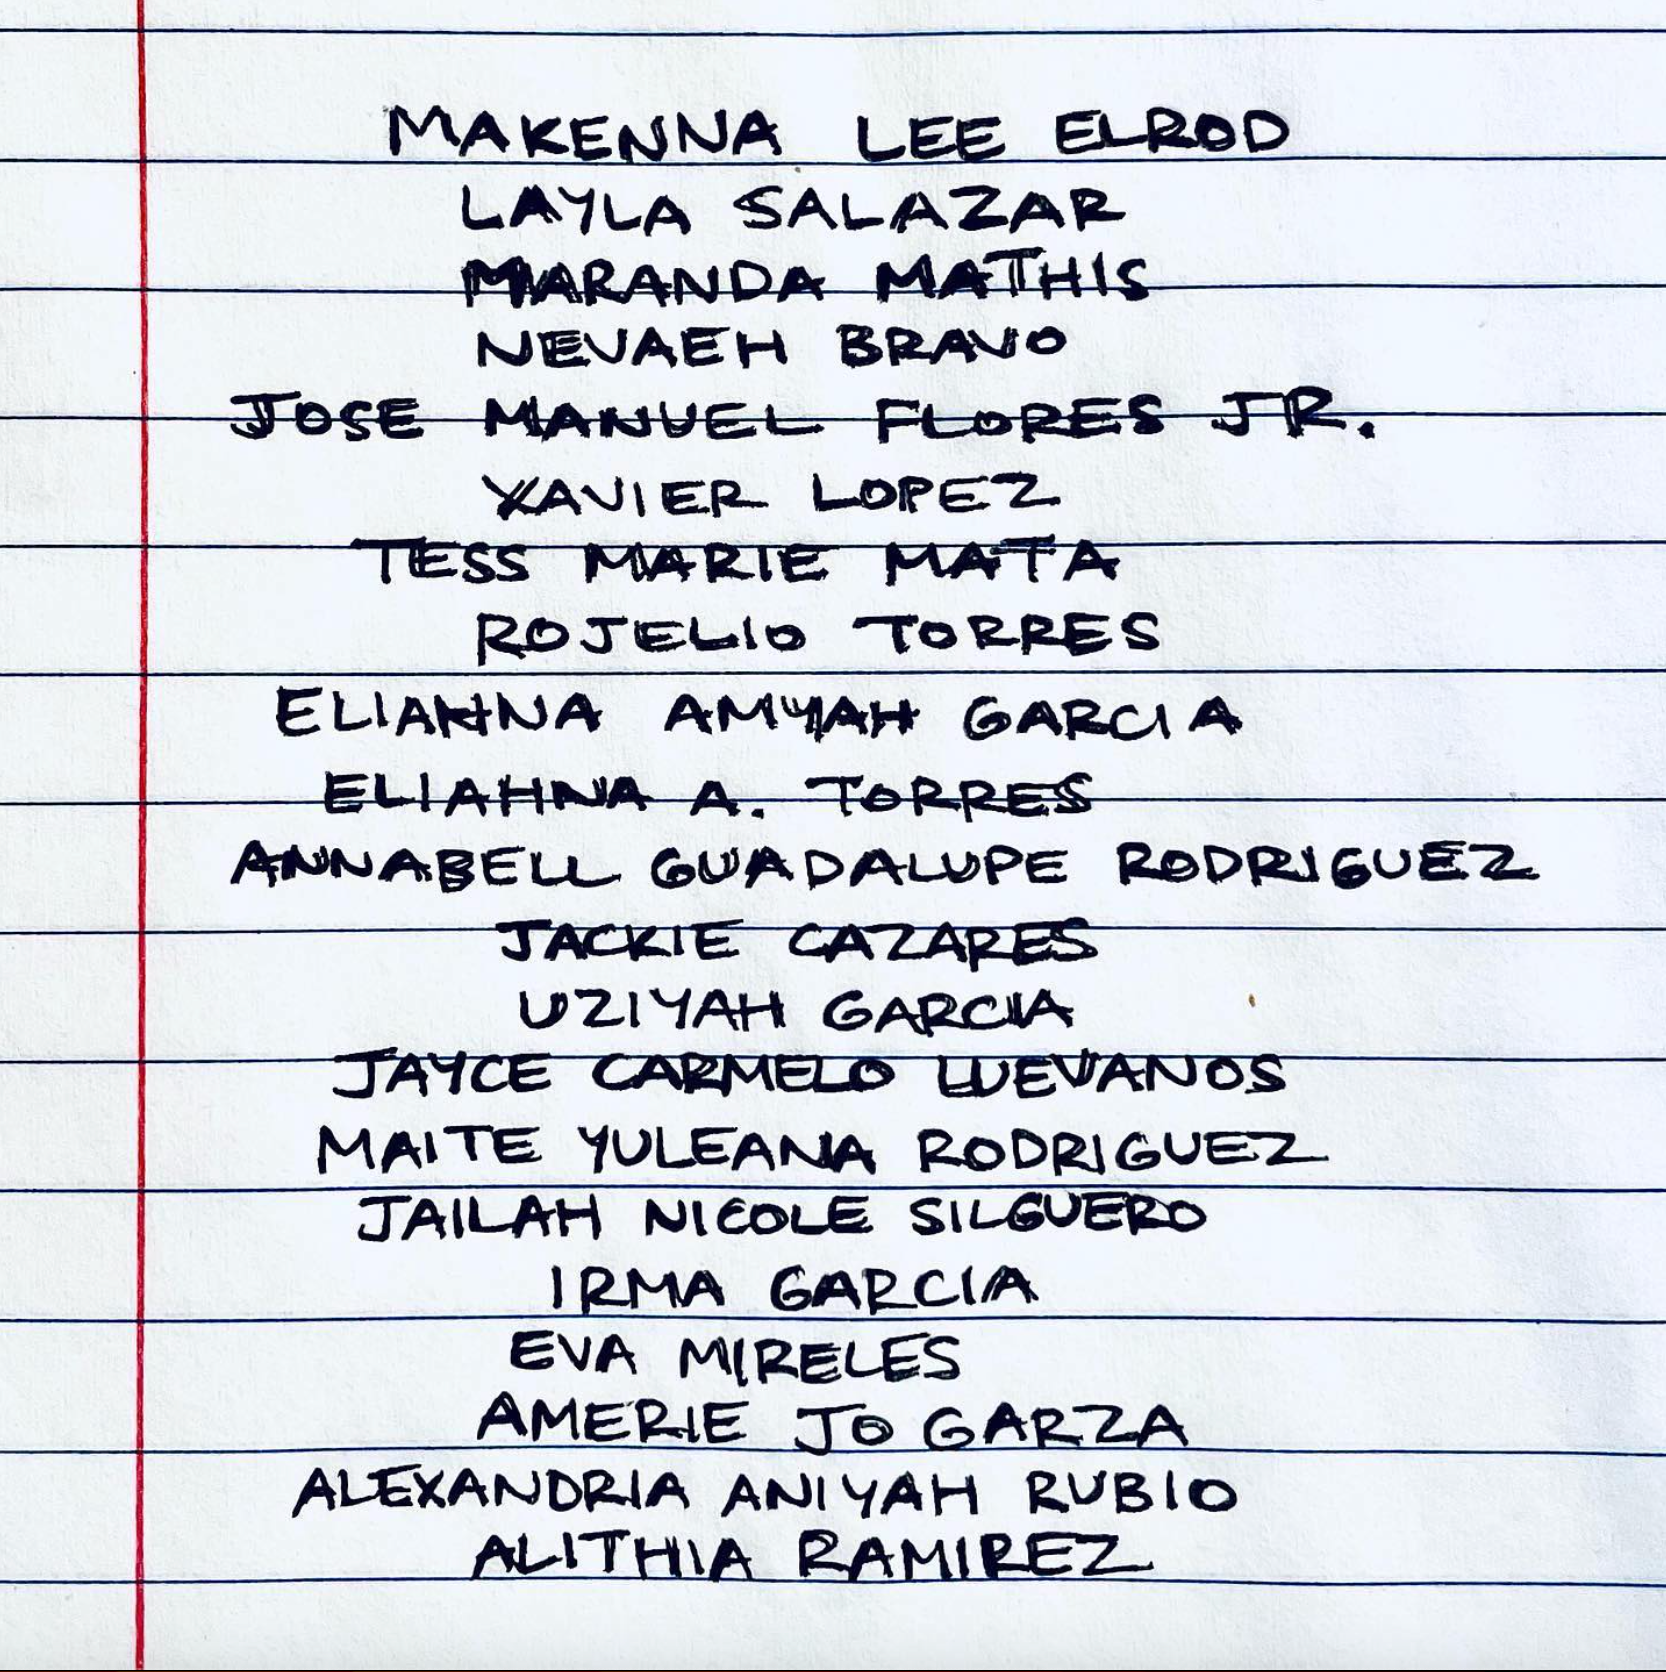 MAKENNA LEE ELROD
LAYLA SALAZAR
MARANDA MATHIS
NEVAEH BRAVO
JOSE MANUEL FLORES JR.
XAVIER LOPEZ
TESS MARIE MATA
ROJELIO TORRES
ELIAHNA AMYAH GARCIA
ELIAHNA A. TORRES
ANNABELL GUADALUPE RODRIGUEZ
JACKIE CAZARES
UZIYAH GARCIA
JAYCE CARMELO LUEVANOS
MAITE YULEANA RODRIGUEZ
JAILAH NICOLE SILGUERO
IRMA GARCIA
EVA MIRELES
AMERIE JO GARZA
ALEXANDRIA ANIYAH RUBIO
ALITHIA RAMIREZ